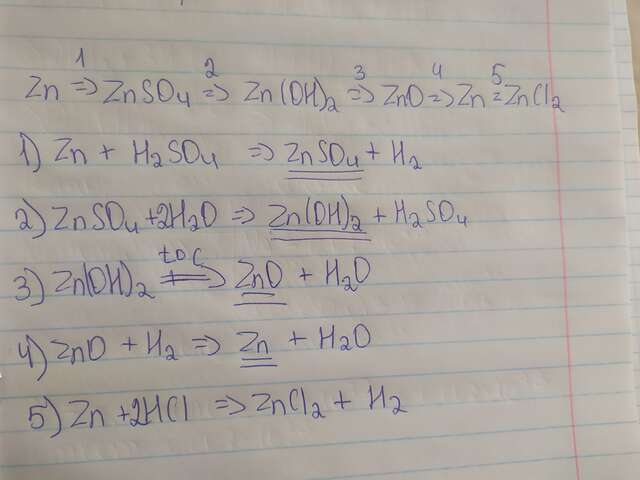 Zn 1=> ZnSO4 2=> Zn(OH)2 3=> ZnO 4=> Zn 5= ZnCl2
1) Zn + H2SO4 => ZnSO4 + H2
2) ZnSO4 + 2H2O => Zn(OH)2 + H2SO4
3) Zn(OH)2 t°C => ZnO + H2O
4) ZnO + H2 => Zn + H2O
5) Zn + 2HCl => ZnCl2 + H2